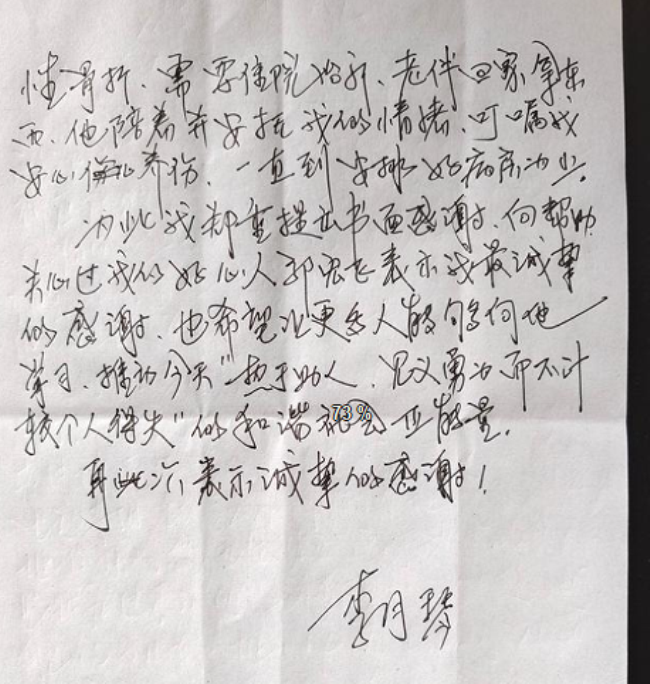 性骨折、需要住院治疗、老伴回家拿东
西、他陪着并安抚我的情绪、叮嘱我
安心养伤、一直到安排好病房为止。
为此我郑重提出书面感谢、向帮助
关心过我的好心人郭宏飞表示我最诚挚
的感谢、也希望让更多人能够多向他
学习、推动今天"热于助人、见义勇为而不计
较个人得失"的和谐社会正能量。
再此次表示诚挚的感谢！
李月琴
73%